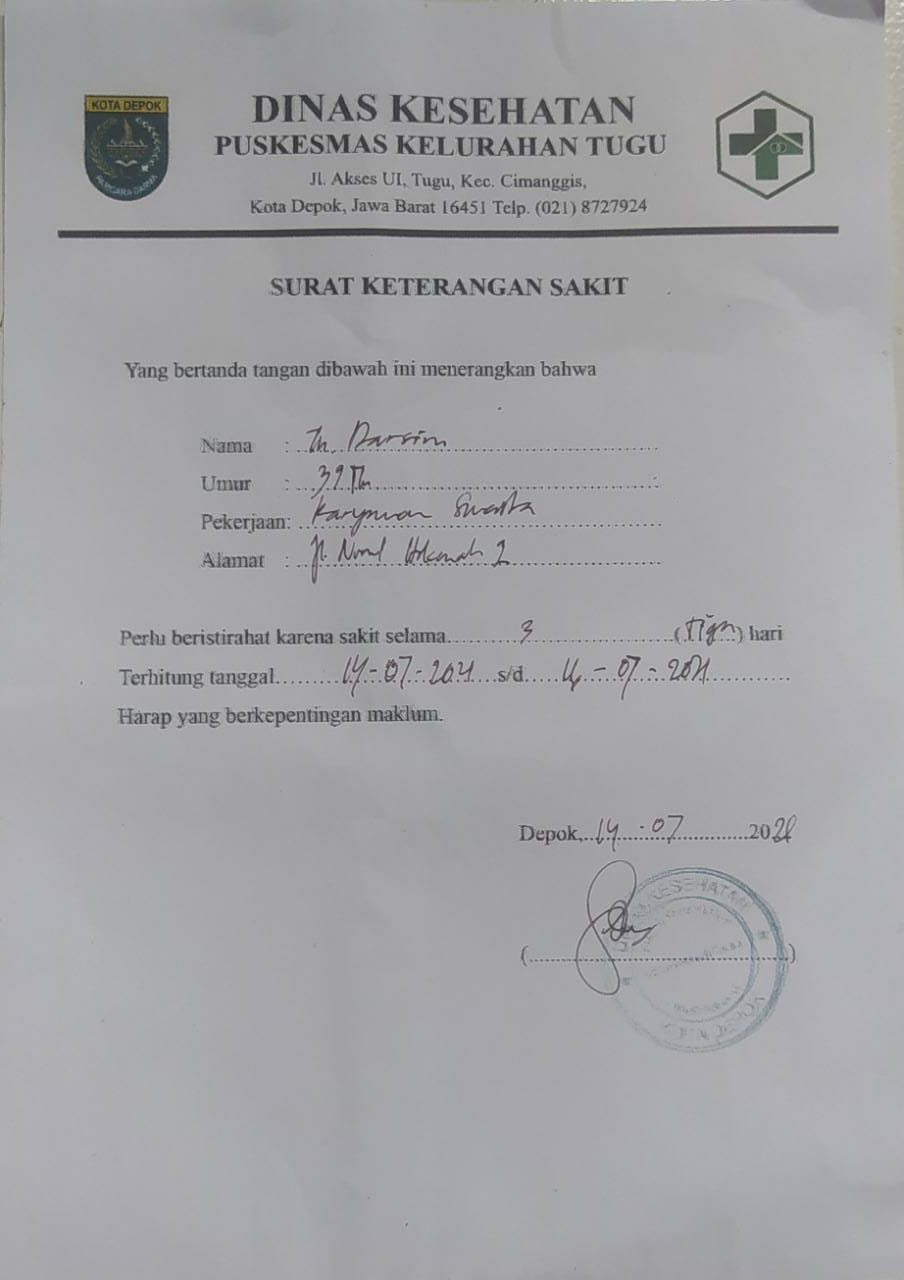 KOTA DEPOK
DINAS KESEHATAN
PUSKESMAS KELURAHAN TUGU
Jl. Akses UI, Tugu, Kec. Cimanggis,
Kota Depok, Jawa Barat 16451 Telp. (021) 8727924
SURAT KETERANGAN SAKIT
Yang bertanda tangan dibawah ini menerangkan bahwa
Nama : Tn. Darsim
Umur : 39 Thn
Pekerjaan: Karyawan Swasta
Alamat : Jl. Nurul 2
Perlu beristirahat karena sakit selama 3 (tiga) hari
Terhitung tanggal 14-07-2021 s/d -07-2021
Harap yang berkepentingan maklum.
Depok, 14-07 2021
KESEHATAN